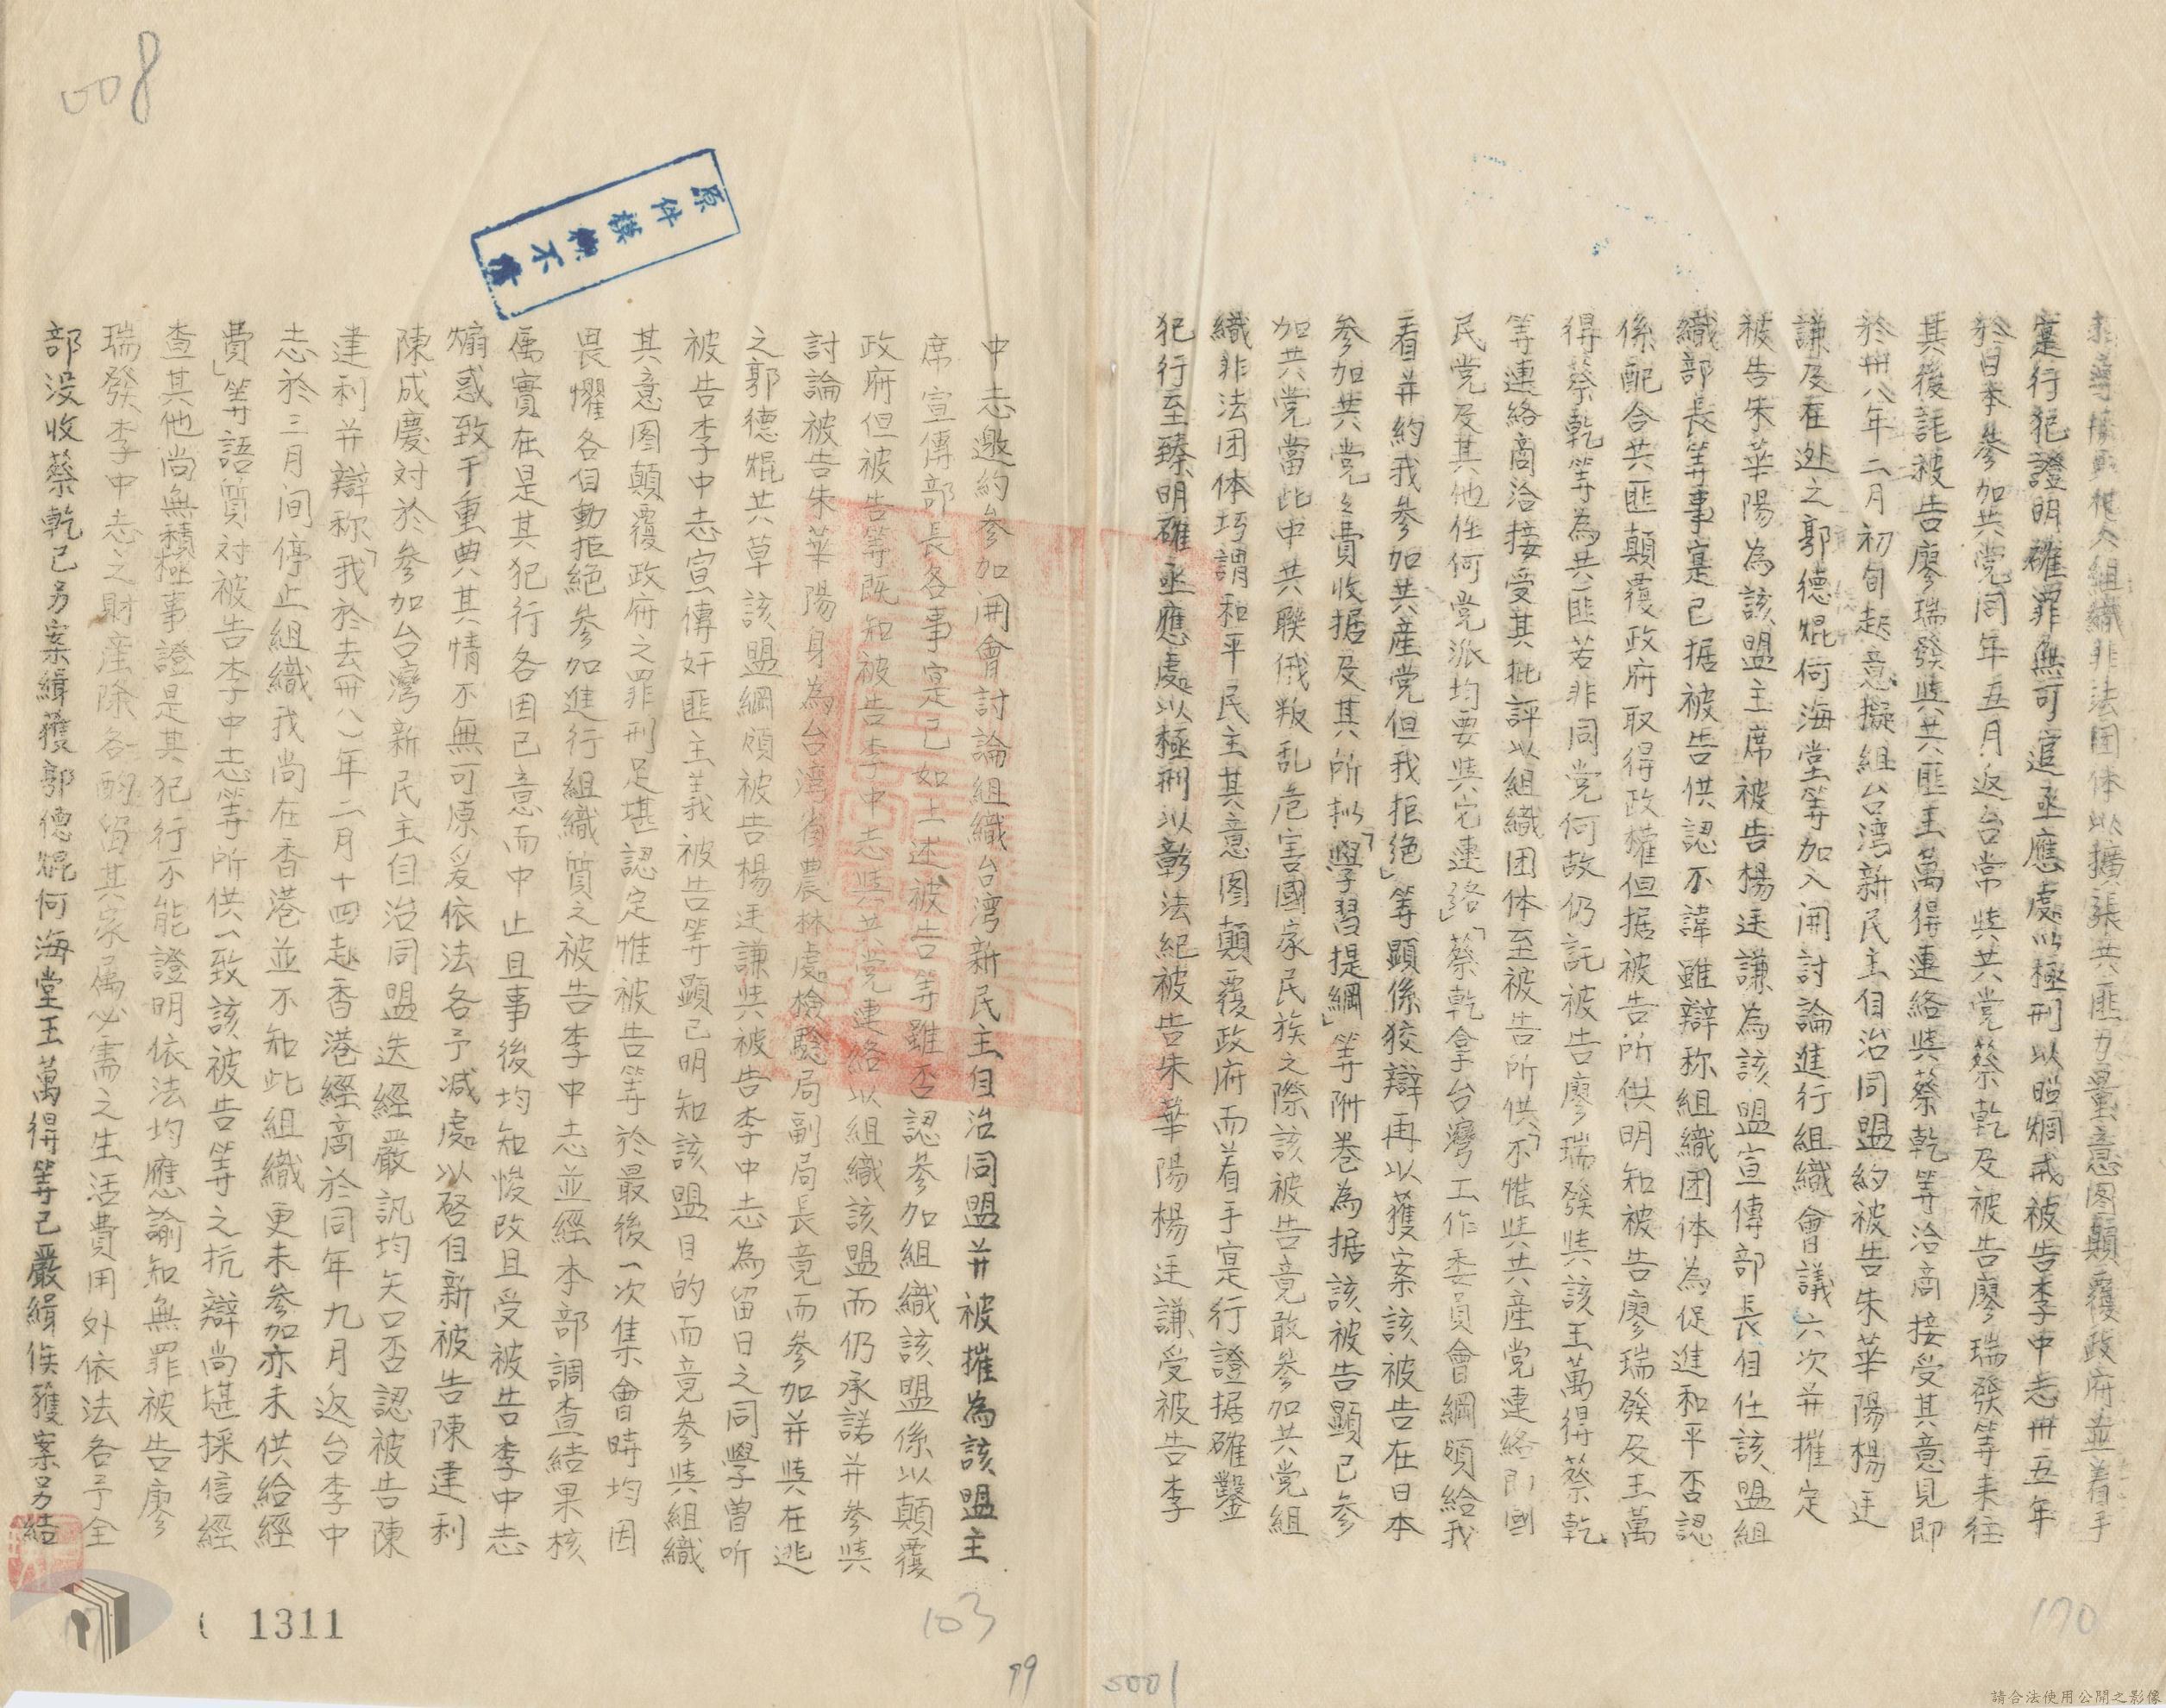 組織非法团体以擴張共匪力量意图顛覆政府並着手
寔行犯證明確罪無可逭亟應處以極刑以昭炯戒被告李中志卅五年
於日本參加共党同年五月返台常與共党蔡乾及被告廖瑞發等来往
其後託被告廖瑞發與共匪王萬得連絡與蔡乾等洽商接受其意見即
於卅八年二月初旬起意擬組台湾新民主自治同盟約被告朱華陽楊廷
謙及在逃之郭德焜何海堂等加入開討論進行組織會議六次并摧定
被告朱華陽為該盟主席被告楊廷謙為該盟宣傳部長自任該盟組
織部長等事寔已据被告供認不諱雖辯称組織团体為促進和平否認
係配合共匪顛覆政府取得政權但据被告所供明知被告廖瑞發及王萬
得蔡乾等為共匪若非同党何故仍託被告廖瑞發與該王萬得蔡乾
等連絡商洽接受其批評以組織团体至被告所供「不惟與共産党連絡即國
民党及其他任何党派均要與它連絡」「蔡乾拿台灣工作委員會綱領給我
看并約我參加共産党但我拒絕」等顯係狡辯再以獲案該被告在日本
参加共党之費收据及其所拟「學習提綱」等附卷為据該被告顯已参
加共党當此中共联俄叛乱危害國家民族之際該被告竟敢參加共党組
織非法团体巧謂和平民主其意图顛覆政府而着手寔行證据確鑿
犯行至臻明確亟應處以極刑以彰法紀被告朱華陽楊廷謙受被告李
中志邀約參加開會討論組織台湾新民主自治同盟并被摧為該盟主
席宣傳部長各事寔已如上述被告等雖否認參加組織該盟係以顛覆
政府但被告等既知被告李中志與共党連絡以組織該盟而仍承諾并參與
討論被告朱華陽身為台湾省農林處檢驗局副局長竟而参加并與在逃
之郭德焜共草該盟綱領被告楊廷謙與被告李中志為留日之同學曾听
被告李中志宣傳奸匪主義被告等顯已明知該盟目的而竟参與組織
其意图顛覆政府之罪刑足堪認定惟被告等於最後一次集會時均因
畏懼各自動拒絕參加進行組織質之被告李中志並經本部調查結果核
属實在是其犯行各因己意而中止且事後均知悛改且受被告李中志
煽惑致干重典其情不無可原爰依法各予減處以啓自新被告陳建利
陳成慶对於参加台灣新民主自治同盟迭經嚴訊均矢口否認被告陳
建利并辯称「我於去卅八年二月十四赴香港經商於同年九月返台李中
志於三月间停止組織我尚在香港並不知此組織更未參加亦未供給經
費」等語質对被告李中志等所供一致該被告等之抗辯尚堪採信經
查其他尚無積極事證是其犯行不能證明依法均應諭知無罪被告廖
瑞發李中志之財産除各酌留其家属必需之生活費用外依法各予全
部没收蔡乾已另案緝獲郭德焜何海堂王萬得等已嚴緝俟獲案另結
原件模糊不清
008
170
103
99
5001
1311
請合法使用公開之影像